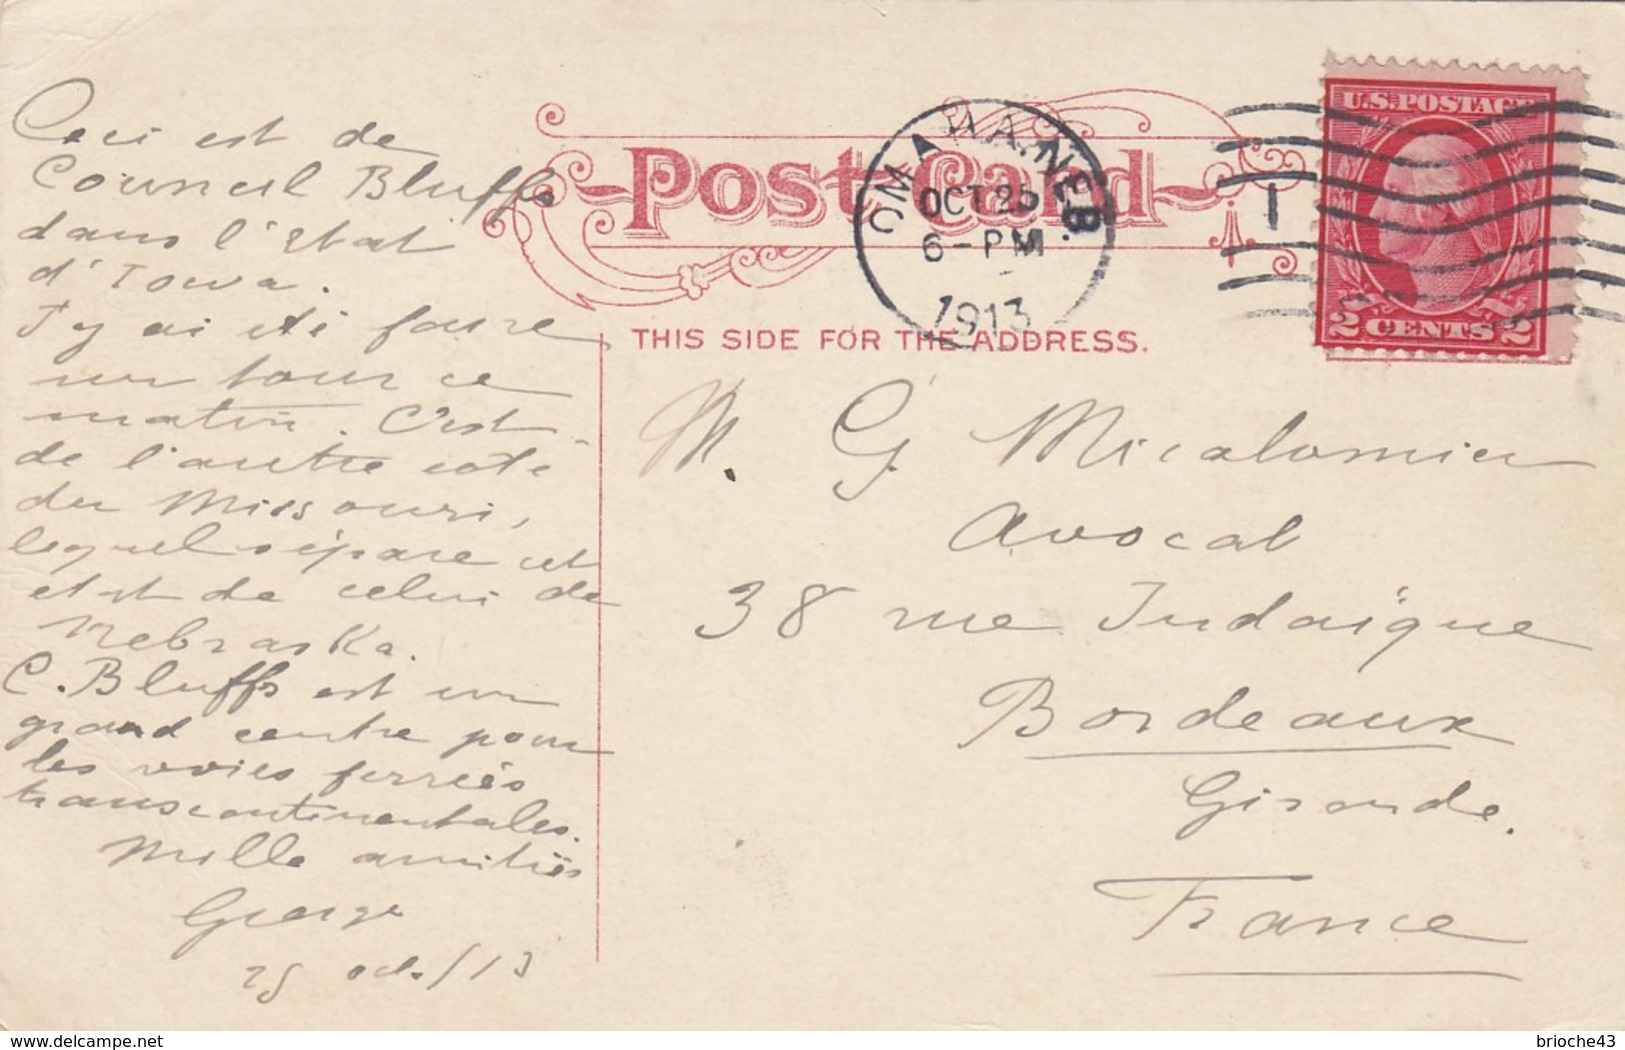 Ceci est de
Council Bluffs
dans l'état
d'Iowa.
J'y ai été faire
un tour ce
matin. C'est
de l'autre coté
du Missouri,
lequel sépare cet
etat de celui de
Nebraska.
C. Bluffs est un
grand centre pour
les voies ferrées
transcontinentales.
Mille amitiés
George
25 oct./13
Post Card
THIS SIDE FOR THE ADDRESS.
OMAHA, NEB.
OCT 25
6-PM
1913
1
U.S. POSTAGE
2 CENTS 2
M. G. Micalomier
Avocat
38 rue Judaïque
Bordeaux
Gironde.
France
delcampe.net
brioche43